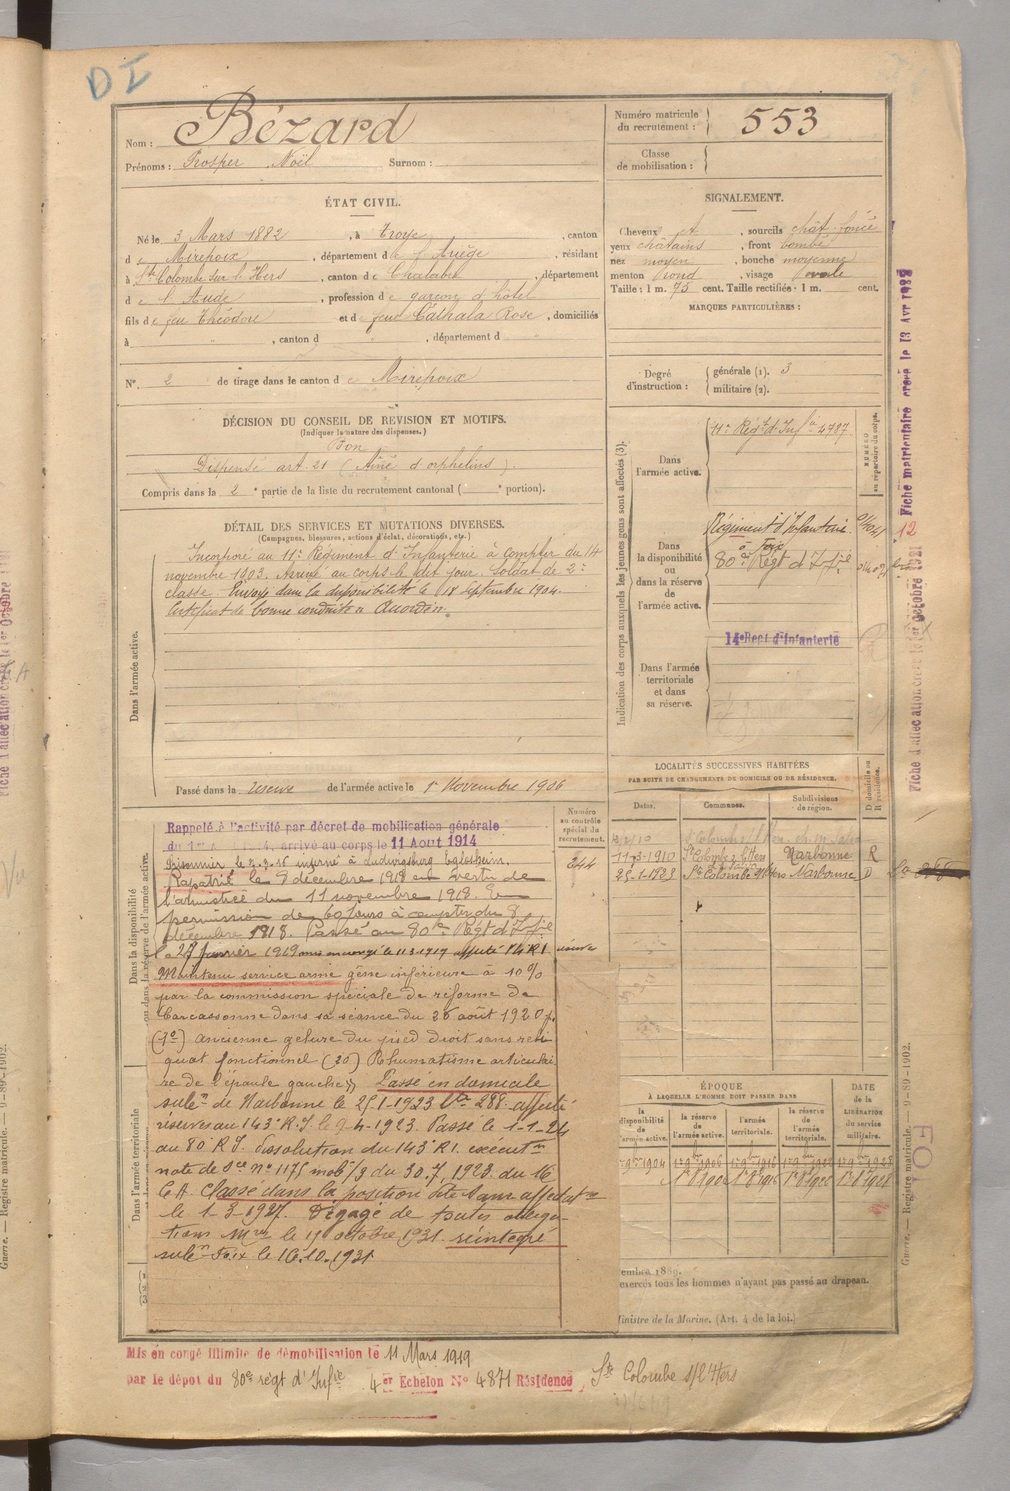 DI
Nom : Bézard
Prénoms : Prosper Noël Surnom :
Numéro matricule du recrutement : 553
Classe de mobilisation :
ÉTAT CIVIL.
Né le 3 Mars 1882, à Troye, canton
de Mirepoix, département de l'Ariège, résidant
à Ste Colombe sur l'Hers, canton de Chalabre, département
de l'Aude, profession de garçon d'hôtel
fils de feu Théodore et de feue Cathala Rose, domiciliés
à , canton d , département d
No. 2 de tirage dans le canton de Mirepoix
SIGNALEMENT.
Cheveux , sourcils chât. foncé
yeux châtains, front bombé
nez moyen, bouche moyenne
menton rond, visage ovale
Taille : 1 m. 75 cent. Taille rectifiée : 1 m. cent.
MARQUES PARTICULIÈRES :
Degré d'instruction : générale (1). 3
militaire (2).
DÉCISION DU CONSEIL DE REVISION ET MOTIFS.
(Indiquer la nature des dispenses.)
Bon
Dispensé art 21 (Aîné d'orphelins).
Compris dans la 2e partie de la liste du recrutement cantonal ( e portion).
DÉTAIL DES SERVICES ET MUTATIONS DIVERSES.
(Campagnes, blessures, actions d'éclat, décorations, etc.)
Dans l'armée active.
Incorporé au 11e Régiment d'Infanterie à compter du 14
novembre 1903. Arrivé au corps le dit jour. Soldat de 2e
classe. Envoyé dans la disponibilité le 18 septembre 1904.
Certificat de bonne conduite accordé.
Passé dans la réserve de l'armée active le 1er Novembre 1906
Indication des corps auxquels les jeunes gens sont affectés (3).
NUMÉRO au répertoire du corps.
Dans l'armée active.
11e Régt d'Infie 4787
Dans la disponibilité ou dans la réserve de l'armée active.
Régiment d'Infanterie
à Foix
80e Régt d'Infie
Dans l'armée territoriale et dans sa réserve.
14e Regt d'Infanterie
LOCALITÉS SUCCESSIVES HABITÉES
PAR SUITE DE CHANGEMENTS DE DOMICILE OU DE RÉSIDENCE.
Dates. Communes. Subdivisions de région. D domicile ou R résidence.
11-3-1910 Ste Colombe s/ l'Hers Narbonne R
25-1-1923 Ste Colombe s/ l'Hers Narbonne D
Numéro au contrôle spécial du recrutement.
244
Dans la disponibilité ou dans la réserve de l'armée active.
Dans l'armée territoriale
Rappelé à l'activité par décret de mobilisation générale
arrivé au corps le 11 Août 1914
Prisonnier le interné à Ludwigsburg Eglosheim.
Rapatrié le 9 décembre 1918 en vertu de
l'armistice du 11 novembre 1918. En
permission de 60 jours à compter du 8
décembre 1918. Passé au 80e Régt d'Infie
le 27 janvier 1919 mis en congé le 11-3-1919 affecté 14 R.I.
Maintenu service armé gêne inférieure à 10%
par la commission spéciale de réforme de
Carcassonne dans sa séance du 26 août 1920 p.
(1o) ancienne gelure du pied droit sans reli
quat fonctionnel (2o) Rhumatisme articulai
re de l'épaule gauche. Passé en domicile
subon de Narbonne le 25-1-1923 288. affecté
réserves au 143e R.I. le 9-4-1923. Passé le 1-1-24
au 80e R.I. Dissolution du 143e R.I. exécutn
note de Sce No 1175 mob/3 du 30.7.1923 du 16
C.A. Classé dans la position dite Sans affectation
le 1-3-1927. Dégagé de toutes obliga-
tions Mres le octobre 1931. réintégré
subn Foix le 16.10.1931
ÉPOQUE
À LAQUELLE L'HOMME DOIT PASSER DANS
la disponibilité de l'armée active.
la réserve de l'armée active.
l'armée territoriale.
la réserve de l'armée territoriale.
DATE de la LIBÉRATION du service militaire.
exercés tous les hommes n'ayant pas passé au drapeau.
Ministre de la Marine. (Art. 4 de la loi.)
Mis en congé illimité de démobilisation le 11 Mars 1919
par le dépôt du 80e régt d'Infie 4er Echelon No 4871 Résidence Ste Colombe s/l'Hers
Fiche matriculaire créée le 13 Avr
12
Guerre. — Registre matricule. — 9-89-1902.